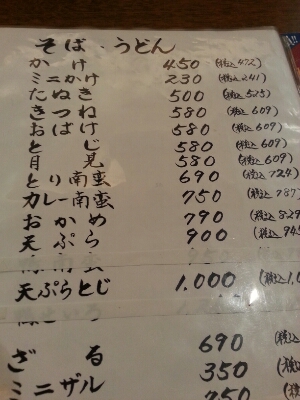 そば・うどん
かけ 450 (税込 472)
ミニかけ 230 (税込 241)
たぬき 500 (税込 525)
きつね 580 (税込 609)
おばけ 580 (税込 609)
とじ 580 (税込 609)
月見 580 (税込 609)
とり南蛮 690 (税込 724)
カレー南蛮 750 (税込 787
おかめ 790 (税込 829
天ぷら 900 (税込 945
天ぷらとじ 1,000 (税込 1,0
ざる 690 (税込
ミニザル 350 (税込
750 (税